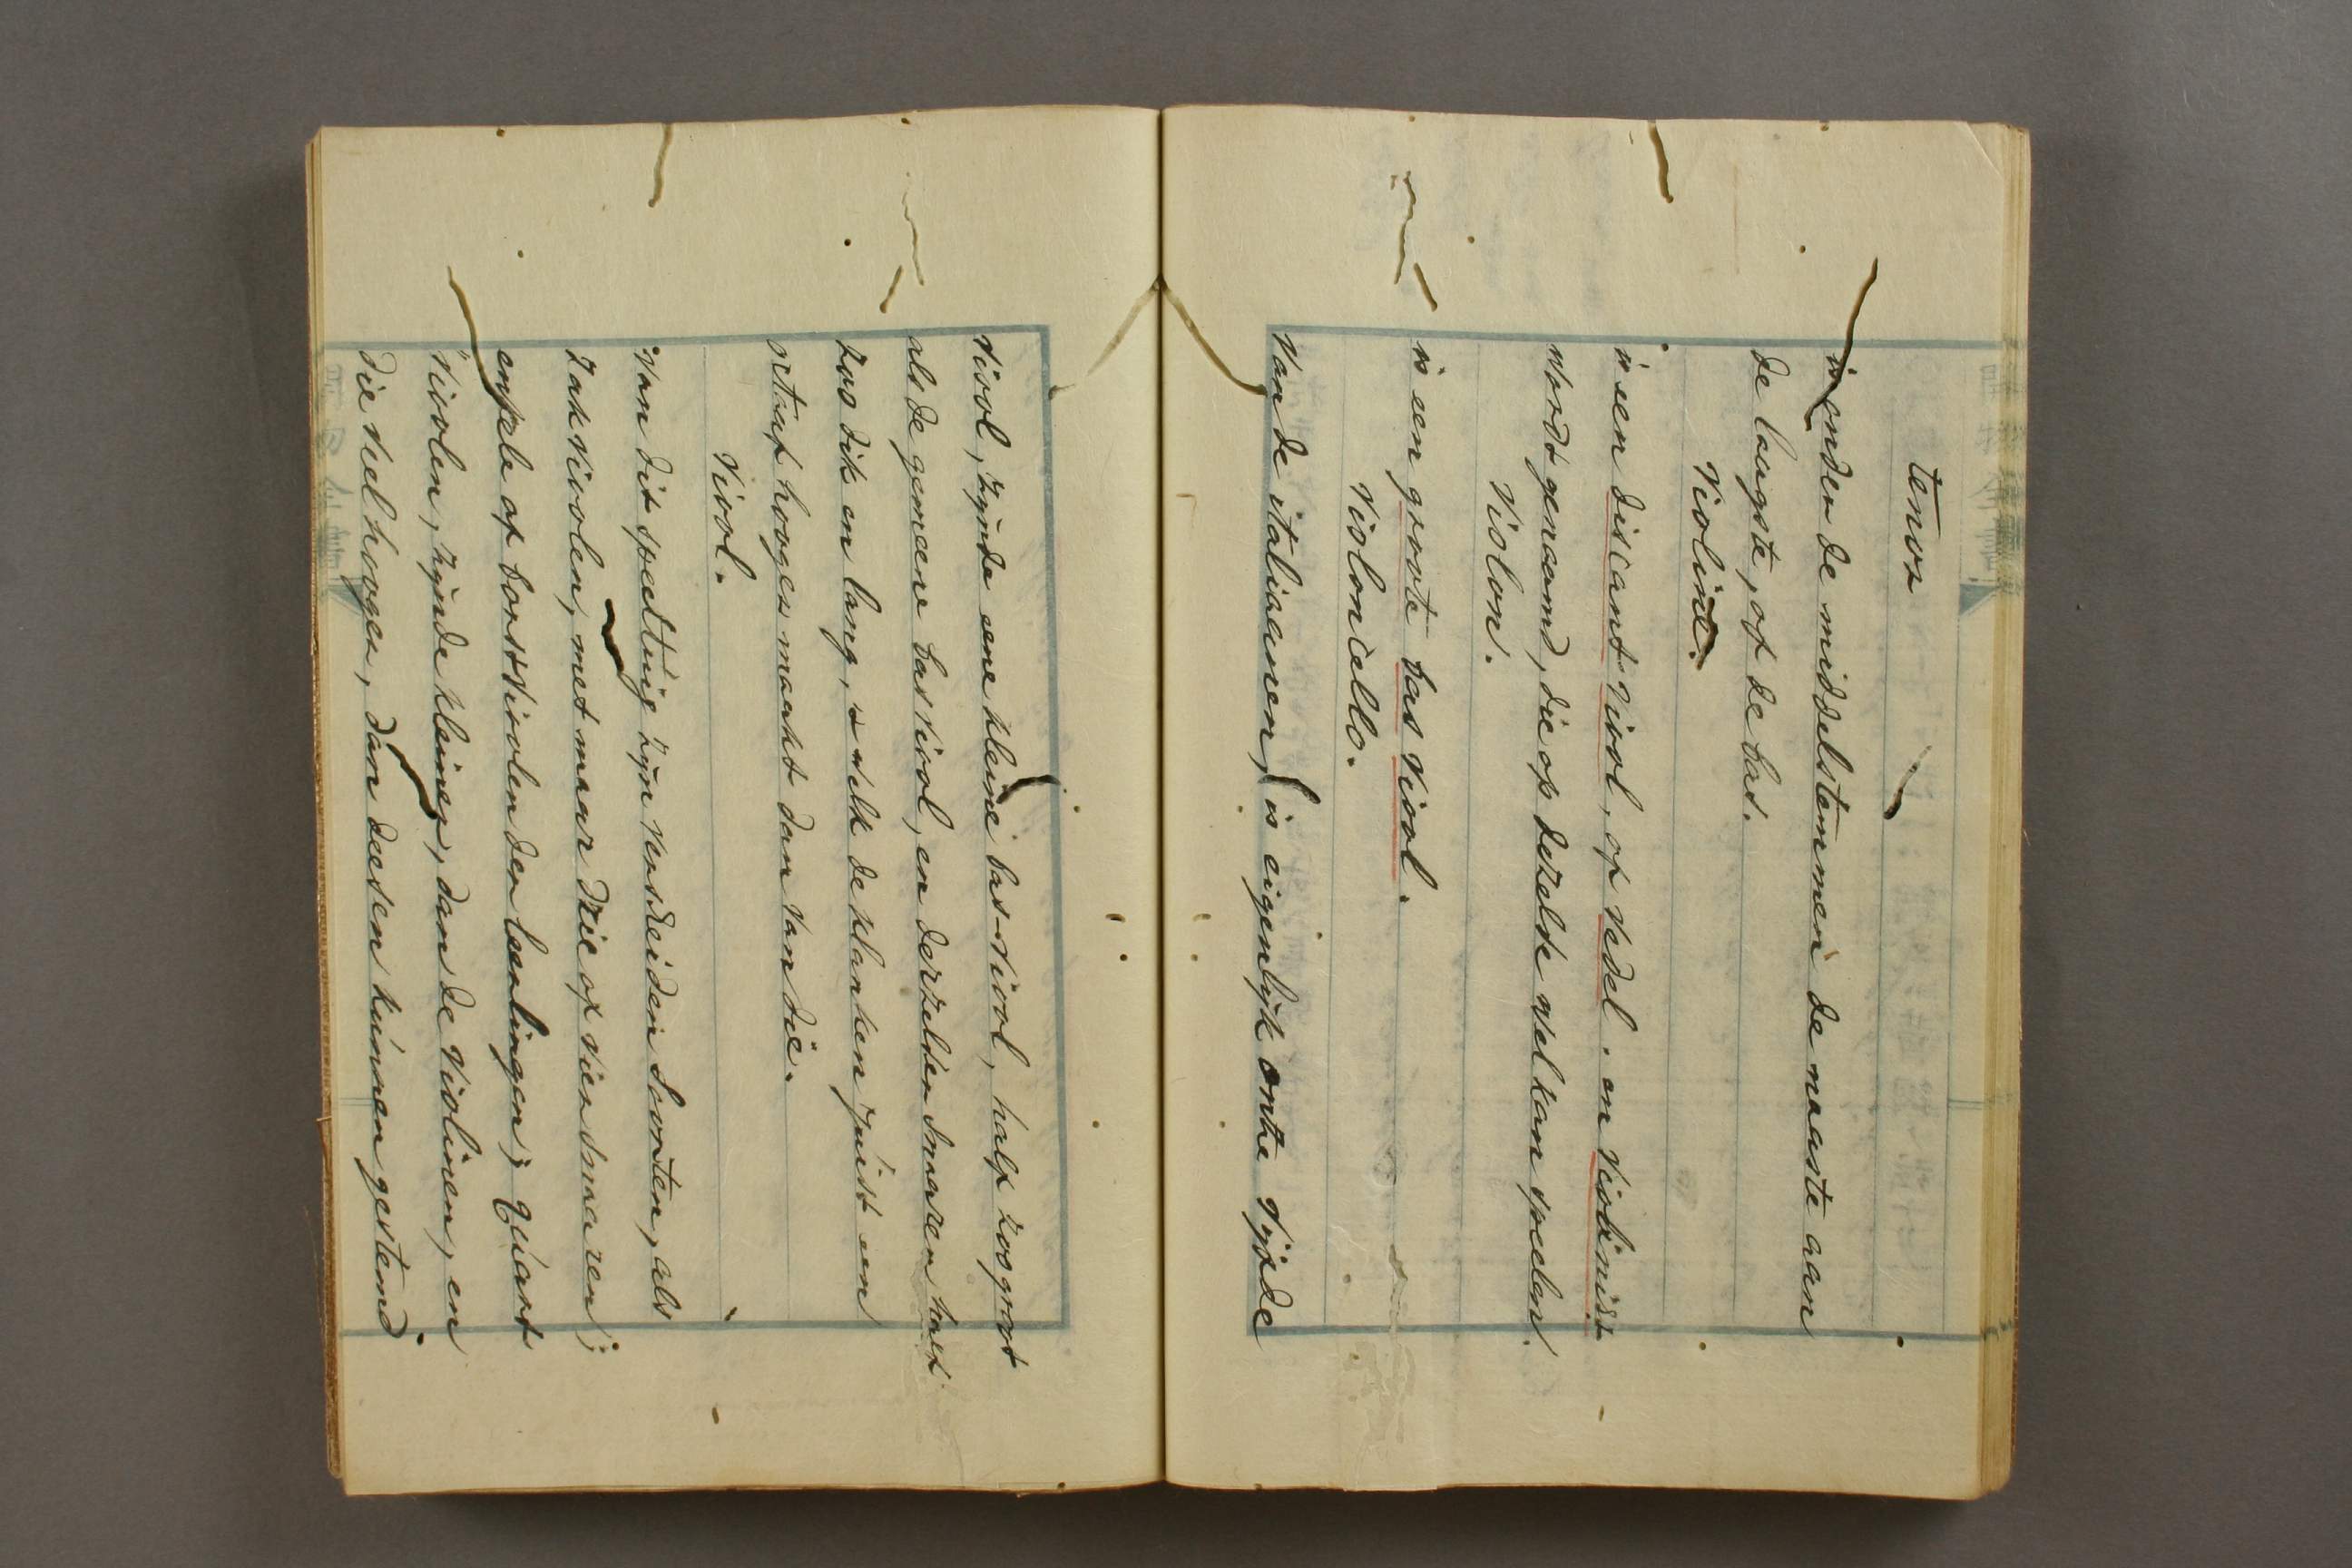 tenor
is onder de middelstemmen de naaste aan
de laagste, of de bas.
Violine.
is een discant viool, of vedel. en violinist
wordt genaamd, die op dezelve wel kan speelen.
Violon.
is een groote bas viool.
Violoncello.
Van de italiaanen, is eigenlijk onze vijfde
viool, zijnde eene kleine bas-viool, half zoo groot
als de gemeene bas viool, en derzelver snaaren half
zoo dik en lang, welk de klanken juist een
octaaf hooger maakt dan van die.
Viool.
Van dit speeltuig zijn verscheiden soorten, als
zak violen, met maar drie of vier snaaren;
enkele of borst violen der leerlingen; quart
violen, zijnde kleiner, dan de violinen, en
die veel hooger, dan deesen kunnen gestemd